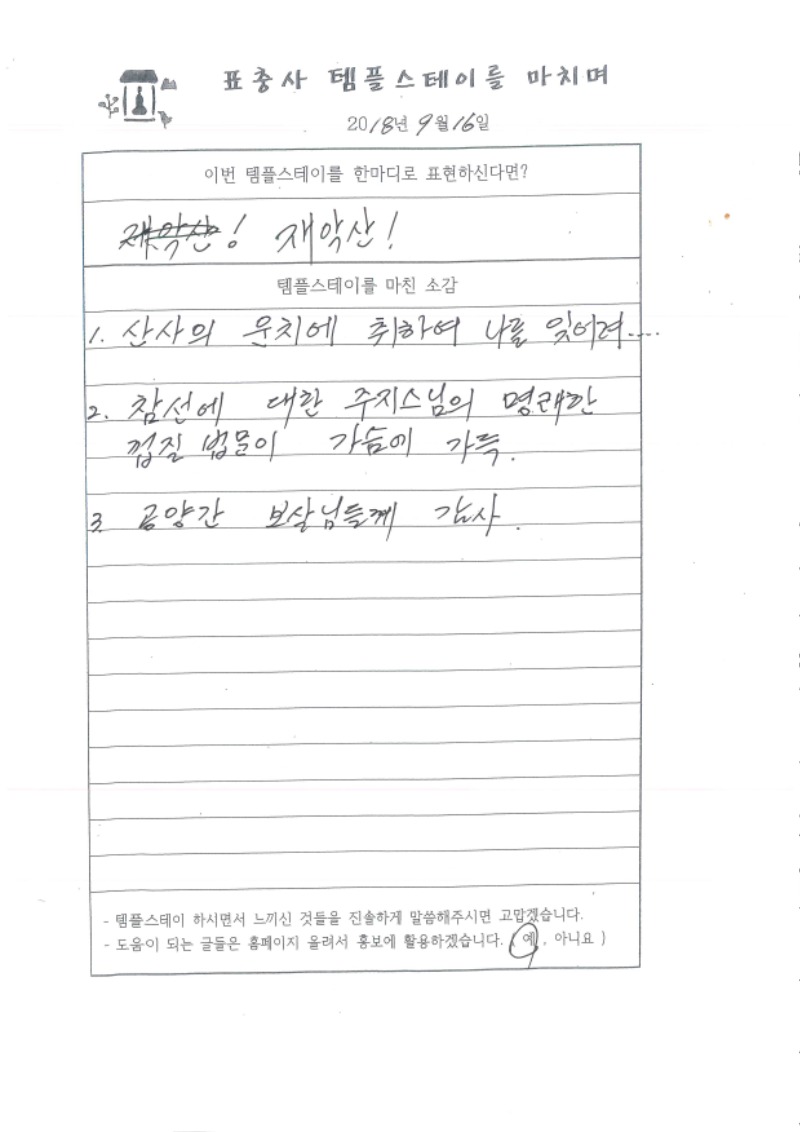 표충사 템플스테이를 마치며
2018년 9월 16일
이번 템플스테이를 한마디로 표현하신다면?
재약산! 재악산!
템플스테이를 마친 소감
1. 산사의 운치에 취하여 나를 잊어려....
2. 참선에 대한 주지스님의 명쾌한
껍질 법문이 가슴에 가득.
3. 공양간 보살님들께 감사.
- 템플스테이 하시면서 느끼신 것들을 진솔하게 말씀해주시면 고맙겠습니다.
- 도움이 되는 글들은 홈페이지 올려서 홍보에 활용하겠습니다. ( 예 , 아니요 )